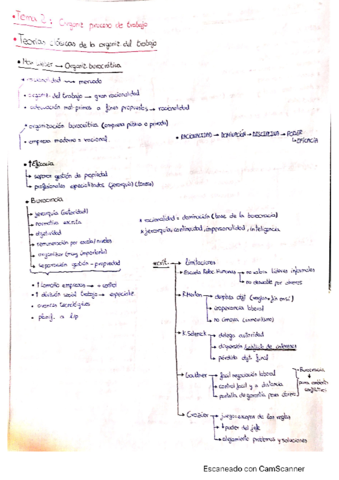 Tema 2: Organiz proceso de trabajo
Teorías clásicas de la organiz del trabajo
Max Weber → Organiz burocrática
racionalidad → mercado
organiz. del trabajo → gran racionalidad
adecuación mat-primas a fines propuestos → racionalidad
organización burocrática (empresa pública o privada)
empresa moderna = racional.
RACIONALIDAD → DOMINACIÓN → DISCIPLINA → PODER
EFICACIA
↑Eficacia
separar gestión de propiedad
profesionales especializados (jerarquía)
Burocracia
jerarquía (autoridad)
normativa escrita
objetividad
remuneración por escala/niveles
organizativa (muy importante)
separación gestión - propiedad
racionalidad = dominación (base de la burocracia)
jerarquía, continuidad, impersonalidad, inteligencia.
↑ tamaño empresas → control
↑ división social trabajo → especializ
avances tecnológicos
planif. a l/p
Limitaciones
Escuela Relac Humanas → no valora líderes informales
no desvelo por obreros
Merton
inoperancia laboral
P. Selznick → delega autoridad
disparidad
pérdida objt final
Gouldner → focal negociación laboral
control focal y a distancia
pantalla de garantía para obrero
Burocracia
Crozier → juego escape de las reglas
↓ poder del jefe
alejamiento problemas y soluciones
Escaneado con CamScanner